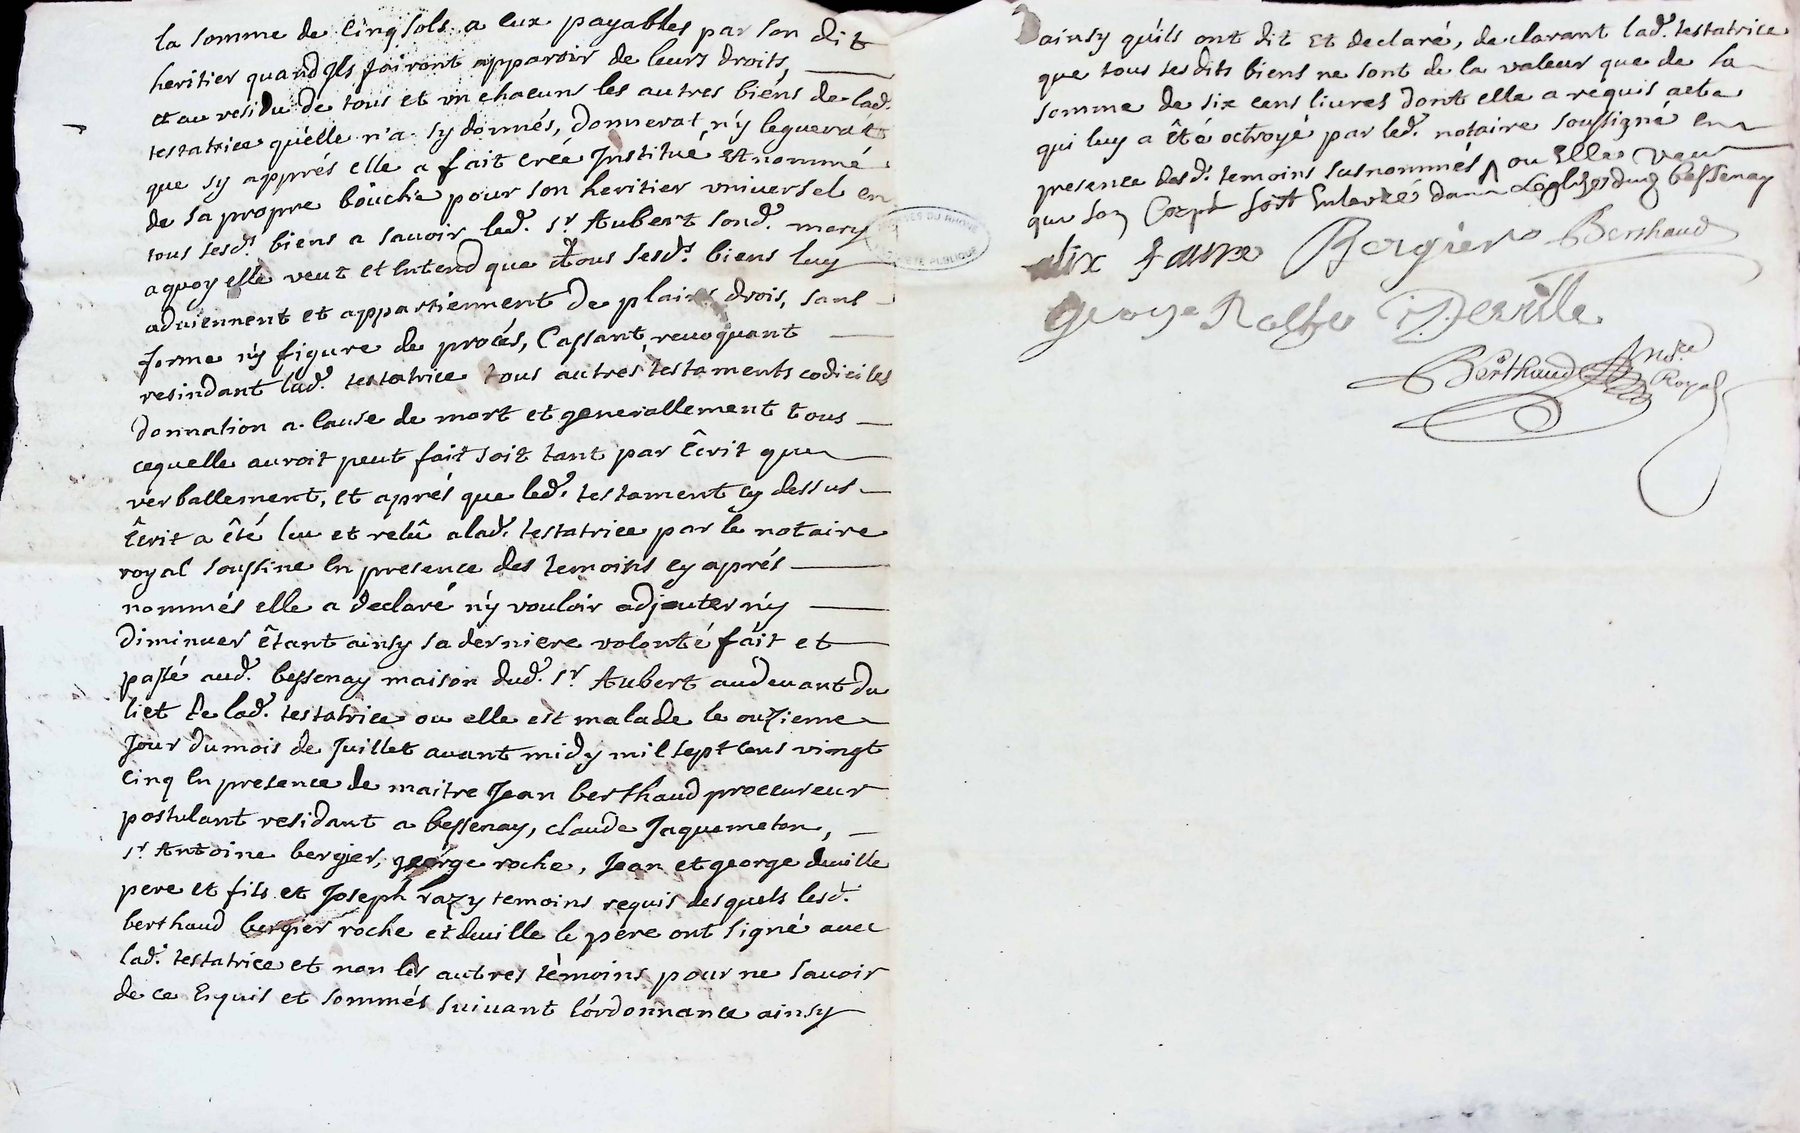 la somme de cinq sols a eux payables par son dit
heritier quand Ils fairont apparoir de leurs droits,
et au residu de tous et vn chacuns les autres biens de lad.
testatrice qu'elle n'a sy donnés, donnerat n'y leguerat
que sy apprés elle a fait créé Institué et nommé
de sa propre bouche pour son heritier vniversel en
tous sesd. biens a sauoir led. sr. Aubert sond. mary
a quoy elle veut et entend que tous sesd. biens luy
aduiennent et appartiennent de plains drois, sans
forme n'y figure de procés, Cassant, reuoquant
resindant lad. testatrice tous autres testaments codiciles
donnation a cause de mort et generallement tous
cequelle auroit peut fait soit tant par êcrit que
verballement, et aprés que led. testament cy dessus
êcrit a êté leu et relû a lad. testatrice par le notaire
royal soussine en presence des temoins cy aprés
nommés elle a declaré n'y vouloir adjouter n'y
diminuer êtant ainsy sa derniere volonté fait et
passé aud. bessenay maison dud. sr. Aubert audeuant du
lict de lad. testatrice ou elle est malade le onzieme
Jour du mois de Juillet auant midy mil sept cens vingt
cinq en presence de maitre Jean berthaud proccureur
postulant residant a bessenay, claude Jaquemeton,
sr. Antoine bergier, george roche, Jean et george deuille
pere et fils et Joseph razy temoins requis desquels lesd.
berthaud bergier roche et deuille le pere ont signé auec
lad. testatrice et non les autres témoins pour ne sauoir
de ce Enquis et sommés suiuant l'ordonnance ainsy
ainsy qu'ils ont dit et declaré, declarant lad. testatrice
que tous sesdits biens ne sont de la valeur que de la
somme de six cens liures dont elle a requis acte
qui luy a êté octroyé par led. notaire soussigné en
presence desd. temoins susnommés, ou Elle veu
que son Corps soit Enterré dans Leglize dud bessenay
alix faure Bergier Berthaud
george Roche J. Deville
Berthaud nre.
Royal